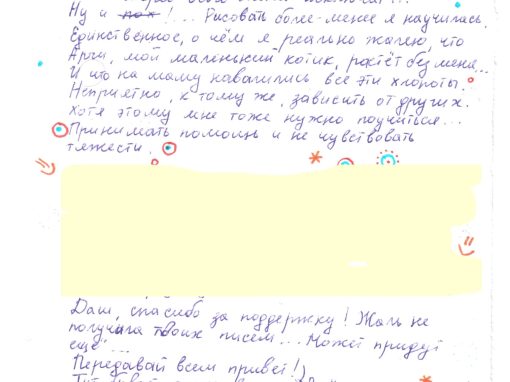 Ну и пох!... Рисовать более-менее я научилась.
Единственное, о чём я реально жалею, что
Арчи, мой маленький котик, растёт без меня...
И что на маму навалились все эти хлопоты.
Неприятно, к тому же, зависить от других.
Хотя этому мне тоже нужно поучиться...
Принимать помощь и не чувствовать
тяжести.
Даш, спасибо за поддержку! Жаль не
получила твоих писем... Может придут
ещё...
Передавай всем привет! )